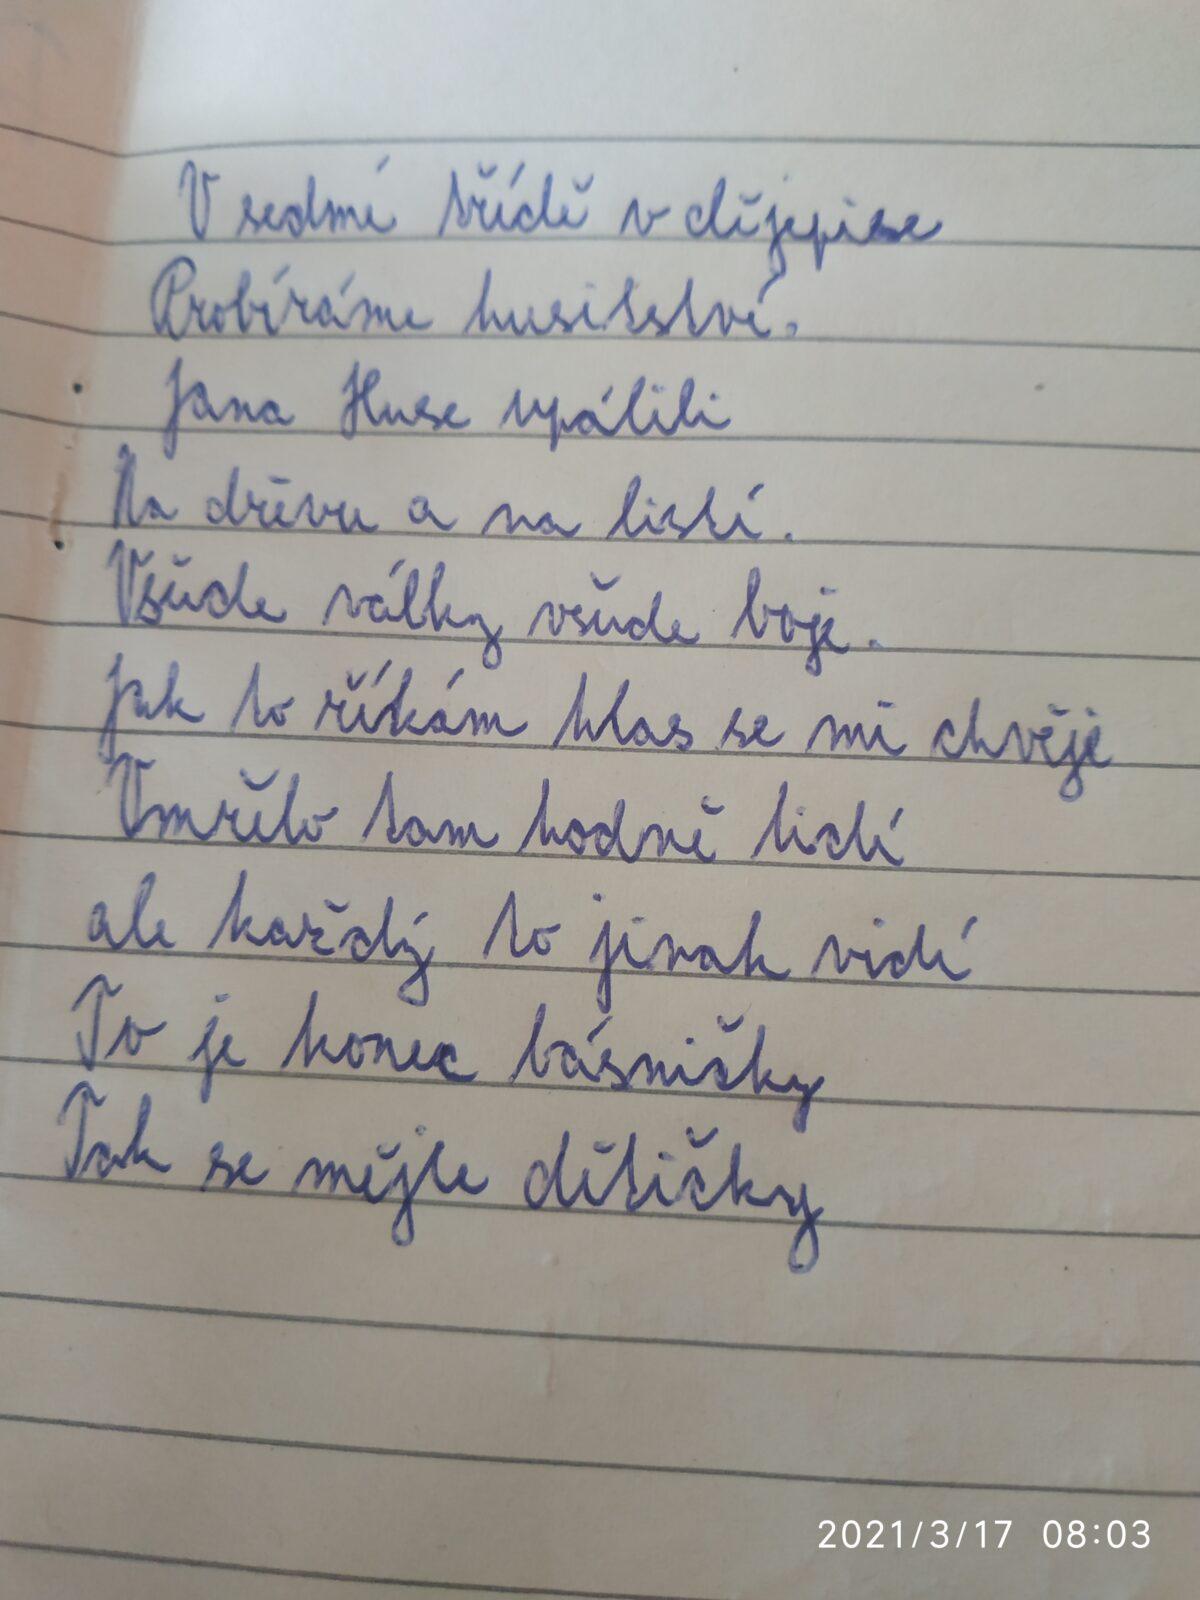 V sedmé třídě v dějepise
Probíráme husitství.
Jana Huse upálili
Na dřevu a na listí.
Všude války všude boje.
Jak to říkám hlas se mi chvěje
Umřelo tam hodně lidí
ale každý to jinak vidí
To je konec básničky
Tak se mějte dětičky
2021/3/17 08:03